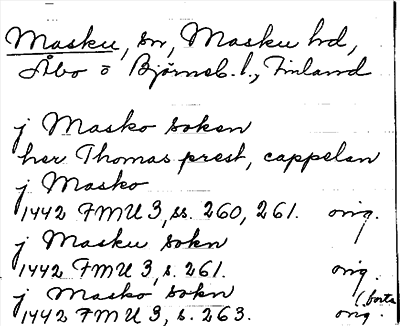 Masku, sn, Masku hd,
Åbo o Björneb. l., Finland
j Masko soken
her Thomas prest, cappelan
j Masko
1442 FMU 3, ss. 260, 261. orig.
j Masku sokn
1442 FMU 3, s. 261. orig.
j Masko sokn (borta
1442 FMU 3, s. 263. orig.